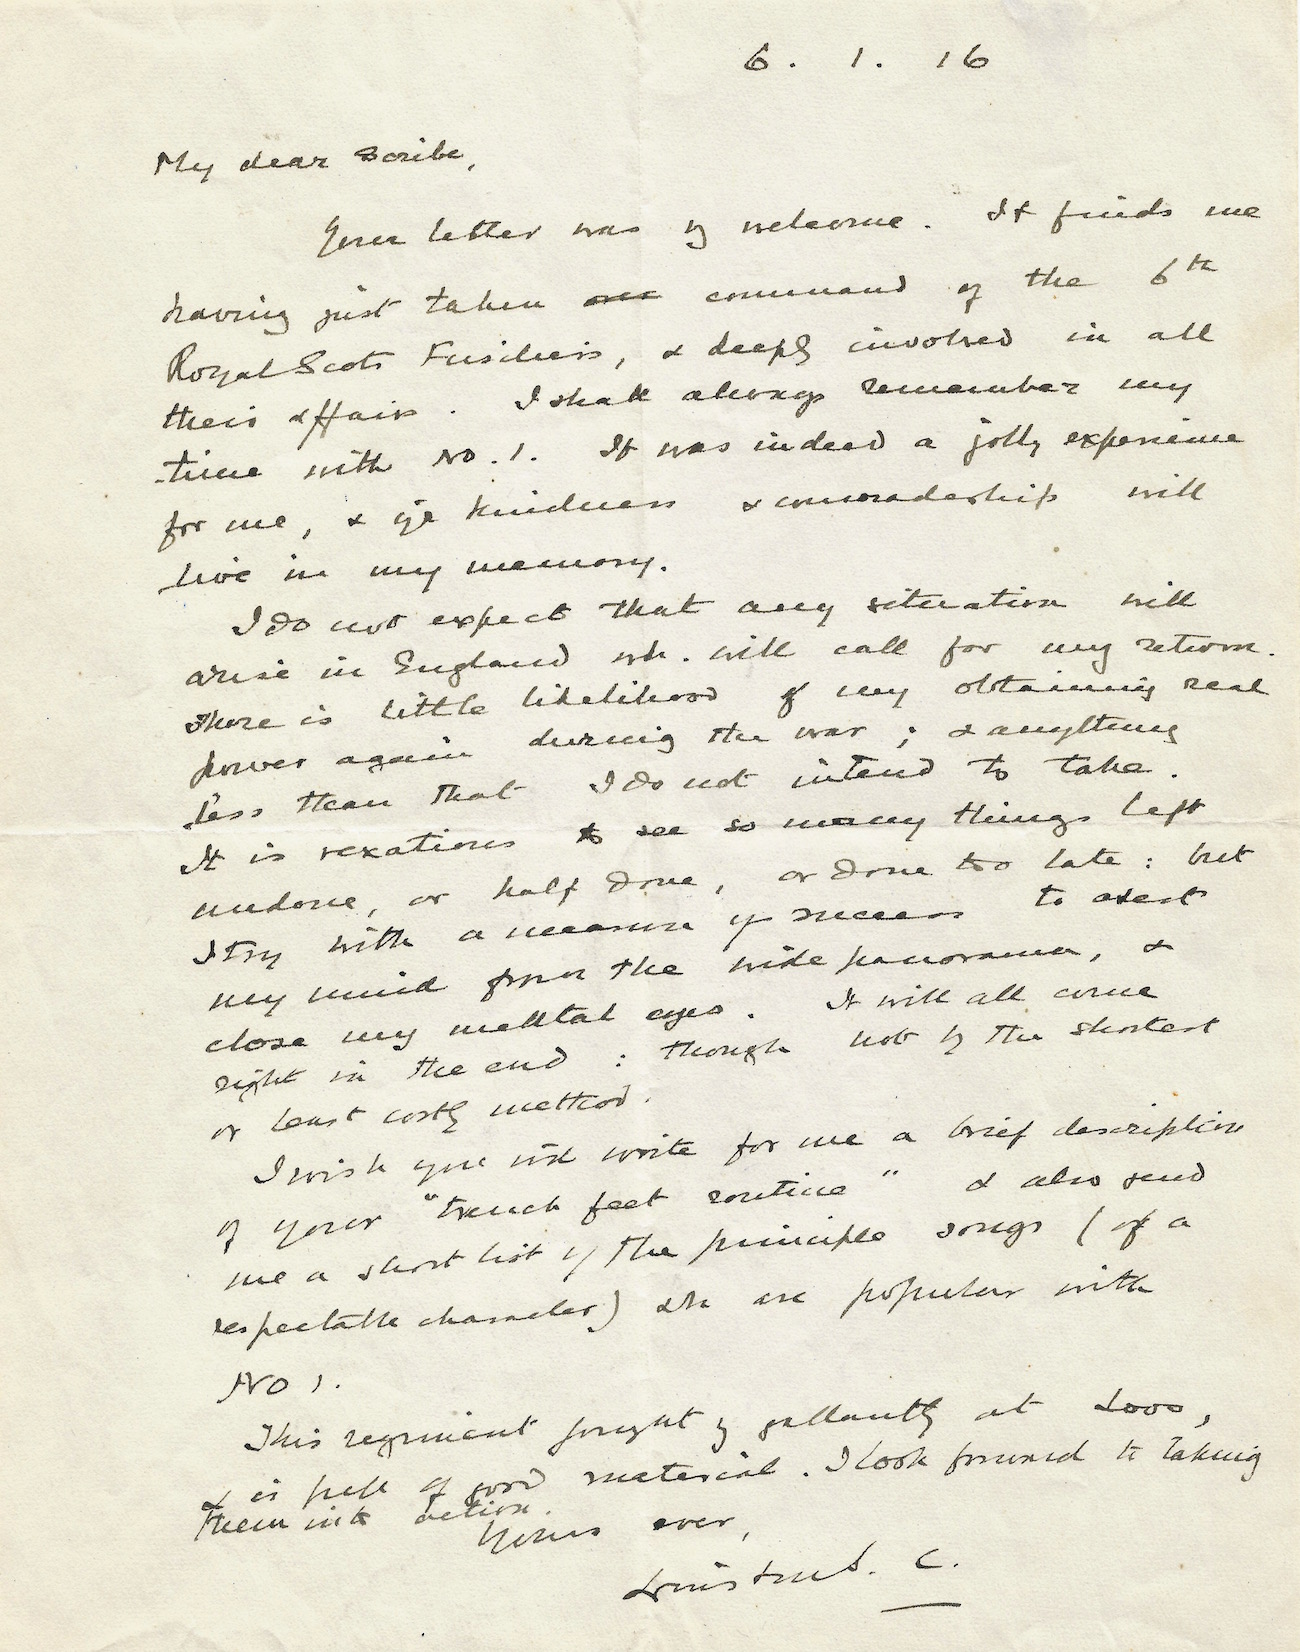 6. 1. 16
My dear Scribe,
Your letter was vy welcome. It finds me
having just taken over command of the 6th
Royal Scots Fusiliers, & deeply involved in all
their affairs. I shall always remember my
time with No. 1. It was indeed a jolly experience
for me, & yr kindness & comradeship will
live in my memory.
I do not expect that any situation will
arise in England wh. will call for my return.
There is little likelihood of my obtaining real
power again during the war; & anything
less than that I do not intend to take.
It is vexatious to see so many things left
undone, or half done, or done too late: but
I try with a measure of success to avert
my mind from the wide panorama, &
close my mental eyes. It will all come
right in the end: though not by the shortest
or least costly method.
I wish you wd write for me a brief description
of your "trench feet routine" & also send
me a short list of the principle songs (of a
respectable character) wh are popular with
No 1.
This regiment fought vy gallantly at Loos,
& is full of good material. I look forward to taking
them into action.
Yours ever,
Winston S. C.